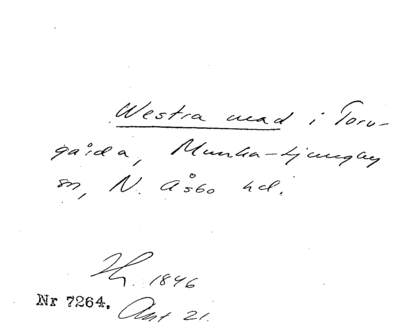 Westra mad i Toru-
gårda, Munka-Ljungby
sn, N. Åsbo hd.
1846
Nr 7264. Akt 21.